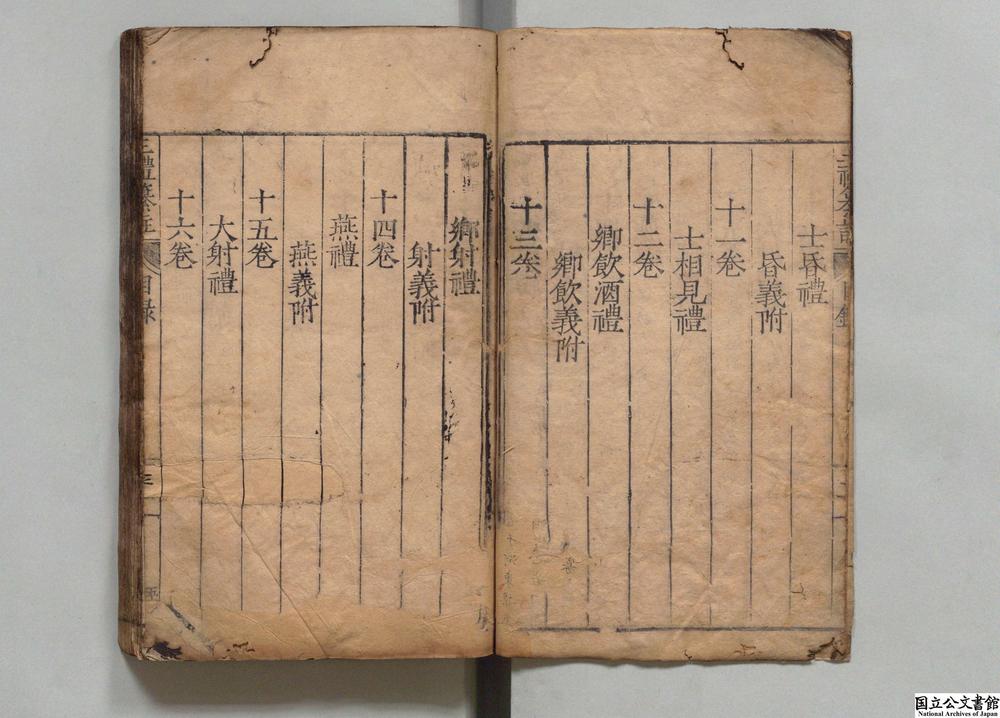 士昏禮
昏義附
十一卷
士相見禮
十二卷
鄉飲酒禮
鄉飲義附
十三卷
鄉射禮
射義附
十四卷
燕禮
燕義附
十五卷
大射禮
十六卷
三禮
目錄
三
国立公文書館
National Archives of Japan